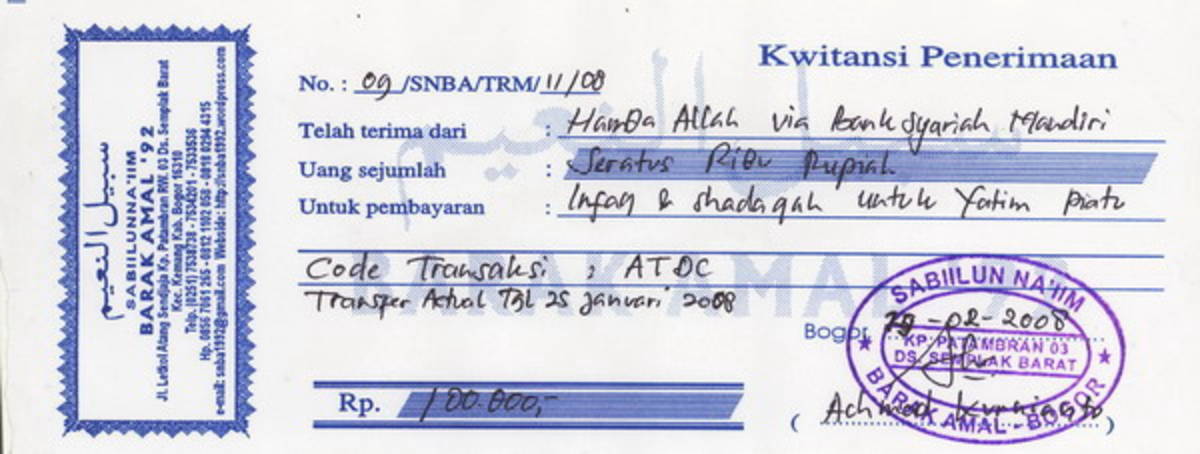 سبيل النعيم
SABIILUNNA'IIM
BARAK AMAL '92
Jl. Letkol Atang Sendjaja Kp. Patambran RW. 03 Ds. Semplak Barat
Kec. Kemang Kab. Bogor 1610
Telp. (0251) 7538738 - 7534201 - 7533536
Hp. 0856 7061 265 - 0812 1102 058 - 0818 0294 4315
e-mail: snba1992@gmail.com Webside: http://snba1992.wordpress.com
Kwitansi Penerimaan
No. : 09 /SNBA/TRM/ 11/08
Telah terima dari : Hamba Allah via Bank Syariah Mandiri
Uang sejumlah : Seratus Ribu Rupiah
Untuk pembayaran : Infaq & shadaqah untuk Yatim piatu
Code Transaksi : ATDC
Transfer Actual Tgl 25 januari 2008
Bogor, -02-2008
Rp. 100.000,-
(Achmad)
SABIILUN NA'IIM
KP. PATAMBRAN 03
DS. SEMPLAK BARAT
BARAK AMAL - BOGOR
سبيل النعيم
BARAK AMAL '92